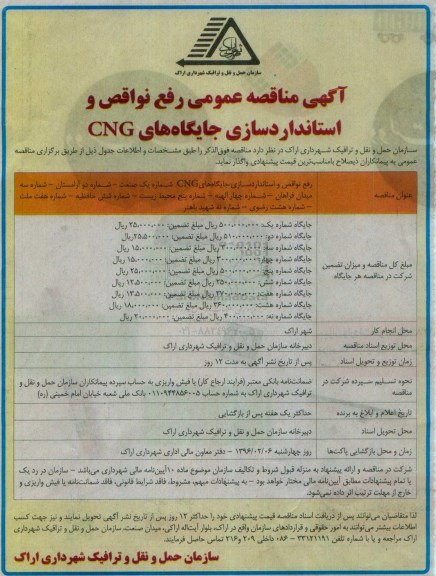 سازمان حمل و نقل و ترافیک شهرداری اراک
آگهی مناقصه عمومی رفع نواقص و
استانداردسازی جایگاه‌های CNG
سـازمان حمل و نقل و ترافیک شـهرداری اراک در نظر دارد مناقصه فوق‌الذکر را طبق مشـخصات و اطلاعات جدول ذیل از طریق برگزاری مناقصه
عمومی به پیمانکاران ذیصلاح بامناسب‌ترین قیمت پیشنهادی واگذار نماید.
عنوان مناقصه
رفع نواقص و استانداردسـازی جایگاه‌های CNG شـماره یک صنعت - شـماره دو آراستان - شماره سه
میدان فراهان - شـماره چهار الهیه - شماره پنج محیط زیست - شماره شش حافظیه - شماره هفت ملت
- شماره هشت رضوی - شماره نه شهید باهنر
مبلغ کل مناقصه و میزان تضمین
شرکت در مناقصه هر جایگاه
جایگاه شماره یک: ۵۰۰،۰۰۰،۰۰۰ ریال مبلغ تضمین: ۲۵،۰۰۰،۰۰۰ ریال
جایگاه شماره دو: ۵۱۰،۰۰۰،۰۰۰ ریال مبلغ تضمین: ۲۵،۵۰۰،۰۰۰ ریال
جایگاه شماره سه: ۳۰۰،۰۰۰،۰۰۰ ریال مبلغ تضمین: ۱۵،۰۰۰،۰۰۰ ریال
جایگاه شماره چهار: ۳۰۰،۰۰۰،۰۰۰ ریال مبلغ تضمین: ۱۵،۰۰۰،۰۰۰ ریال
جایگاه شماره پنج: ۵۰۰،۰۰۰،۰۰۰ ریال مبلغ تضمین: ۲۵،۰۰۰،۰۰۰ ریال
جایگاه شماره شش: ۲۵۰،۰۰۰،۰۰۰ ریال مبلغ تضمین: ۱۲،۵۰۰،۰۰۰ ریال
جایگاه شماره هفت: ۲۷۰،۰۰۰،۰۰۰ ریال مبلغ تضمین: ۱۳،۵۰۰،۰۰۰ ریال
جایگاه شماره هشت: ۳۶۰،۰۰۰،۰۰۰ ریال مبلغ تضمین: ۱۸،۰۰۰،۰۰۰ ریال
جایگاه شماره نه: ۴۰۰،۰۰۰،۰۰۰ ریال مبلغ تضمین: ۲۰،۰۰۰،۰۰۰ ریال
محل انجام کار
شهر اراک
محل توزیع اسناد مناقصه
دبیرخانه سازمان حمل و نقل و ترافیک شهرداری اراک
زمان توزیع و تحویل اسناد
پس از تاریخ نشر آگهی به مدت ۱۲ روز
نحوه تسـلیم سـپرده شرکت در
مناقصه
ضمانت‌نامه بانکی معتبر (فرایند ارجاع کار) یا فیش واریزی به حساب سپرده پیمانکاران سازمان حمل و نقل و
ترافیک شهرداری اراک به شماره حساب ۰۱۱۰۹۴۳۸۵۶۰۰۵ بانک ملی شعبه خیابان امام خمینی (ره)
تاریخ اعلام و ابلاغ به برنده
حداکثر یک هفته پس از بازگشایی
محل تحویل اسناد
دبیرخانه سازمان حمل و نقل و ترافیک شهرداری اراک
زمان و محل بازگشایی پاکت‌ها
روز چهارشنبه ۱۳۹۶/۰۲/۰۶ - دفتر معاون مالی اداری شهرداری اراک
شرکت در مناقصه و ارائه پیشنهاد به منزله قبول شروط و تکالیف سازمان موضوع ماده ۱۰ آیین‌نامه مالی شهرداری می‌باشد - سازمان در رد یک
یا تمام پیشنهادات مطابق آیین‌نامه مالی مختار خواهد بود - به پیشنهادات مبهم، مشروط، فاقد شرایط قانونی، فاقد ضمانت‌نامه یا فیش واریزی و
خارج از مهلت ترتیب اثر داده نمی‌شود.
لذا متقاضیان می‌توانند پس از دریافت اسناد مناقصه قیمت پیشنهادی خود را حداکثر ۱۲ روز پس از تاریخ نشر آگهی تحویل نمایند و نیز جهت کسب
اطلاعات بیشتر می‌توانند به امور حقوقی و قراردادهای سازمان واقع در اراک، بلوار آیت‌اله اراکی، میدان صنعت، سازمان حمل و نقل و ترافیک شهرداری
اراک مراجعه و یا با شماره تلفن ۳۳۱۲۱۱۹۱ - ۰۸۶ داخلی ۲۰۹ و ۲۱۶ تماس حاصل فرمایند.
سازمان حمل و نقل و ترافیک شهرداری اراک